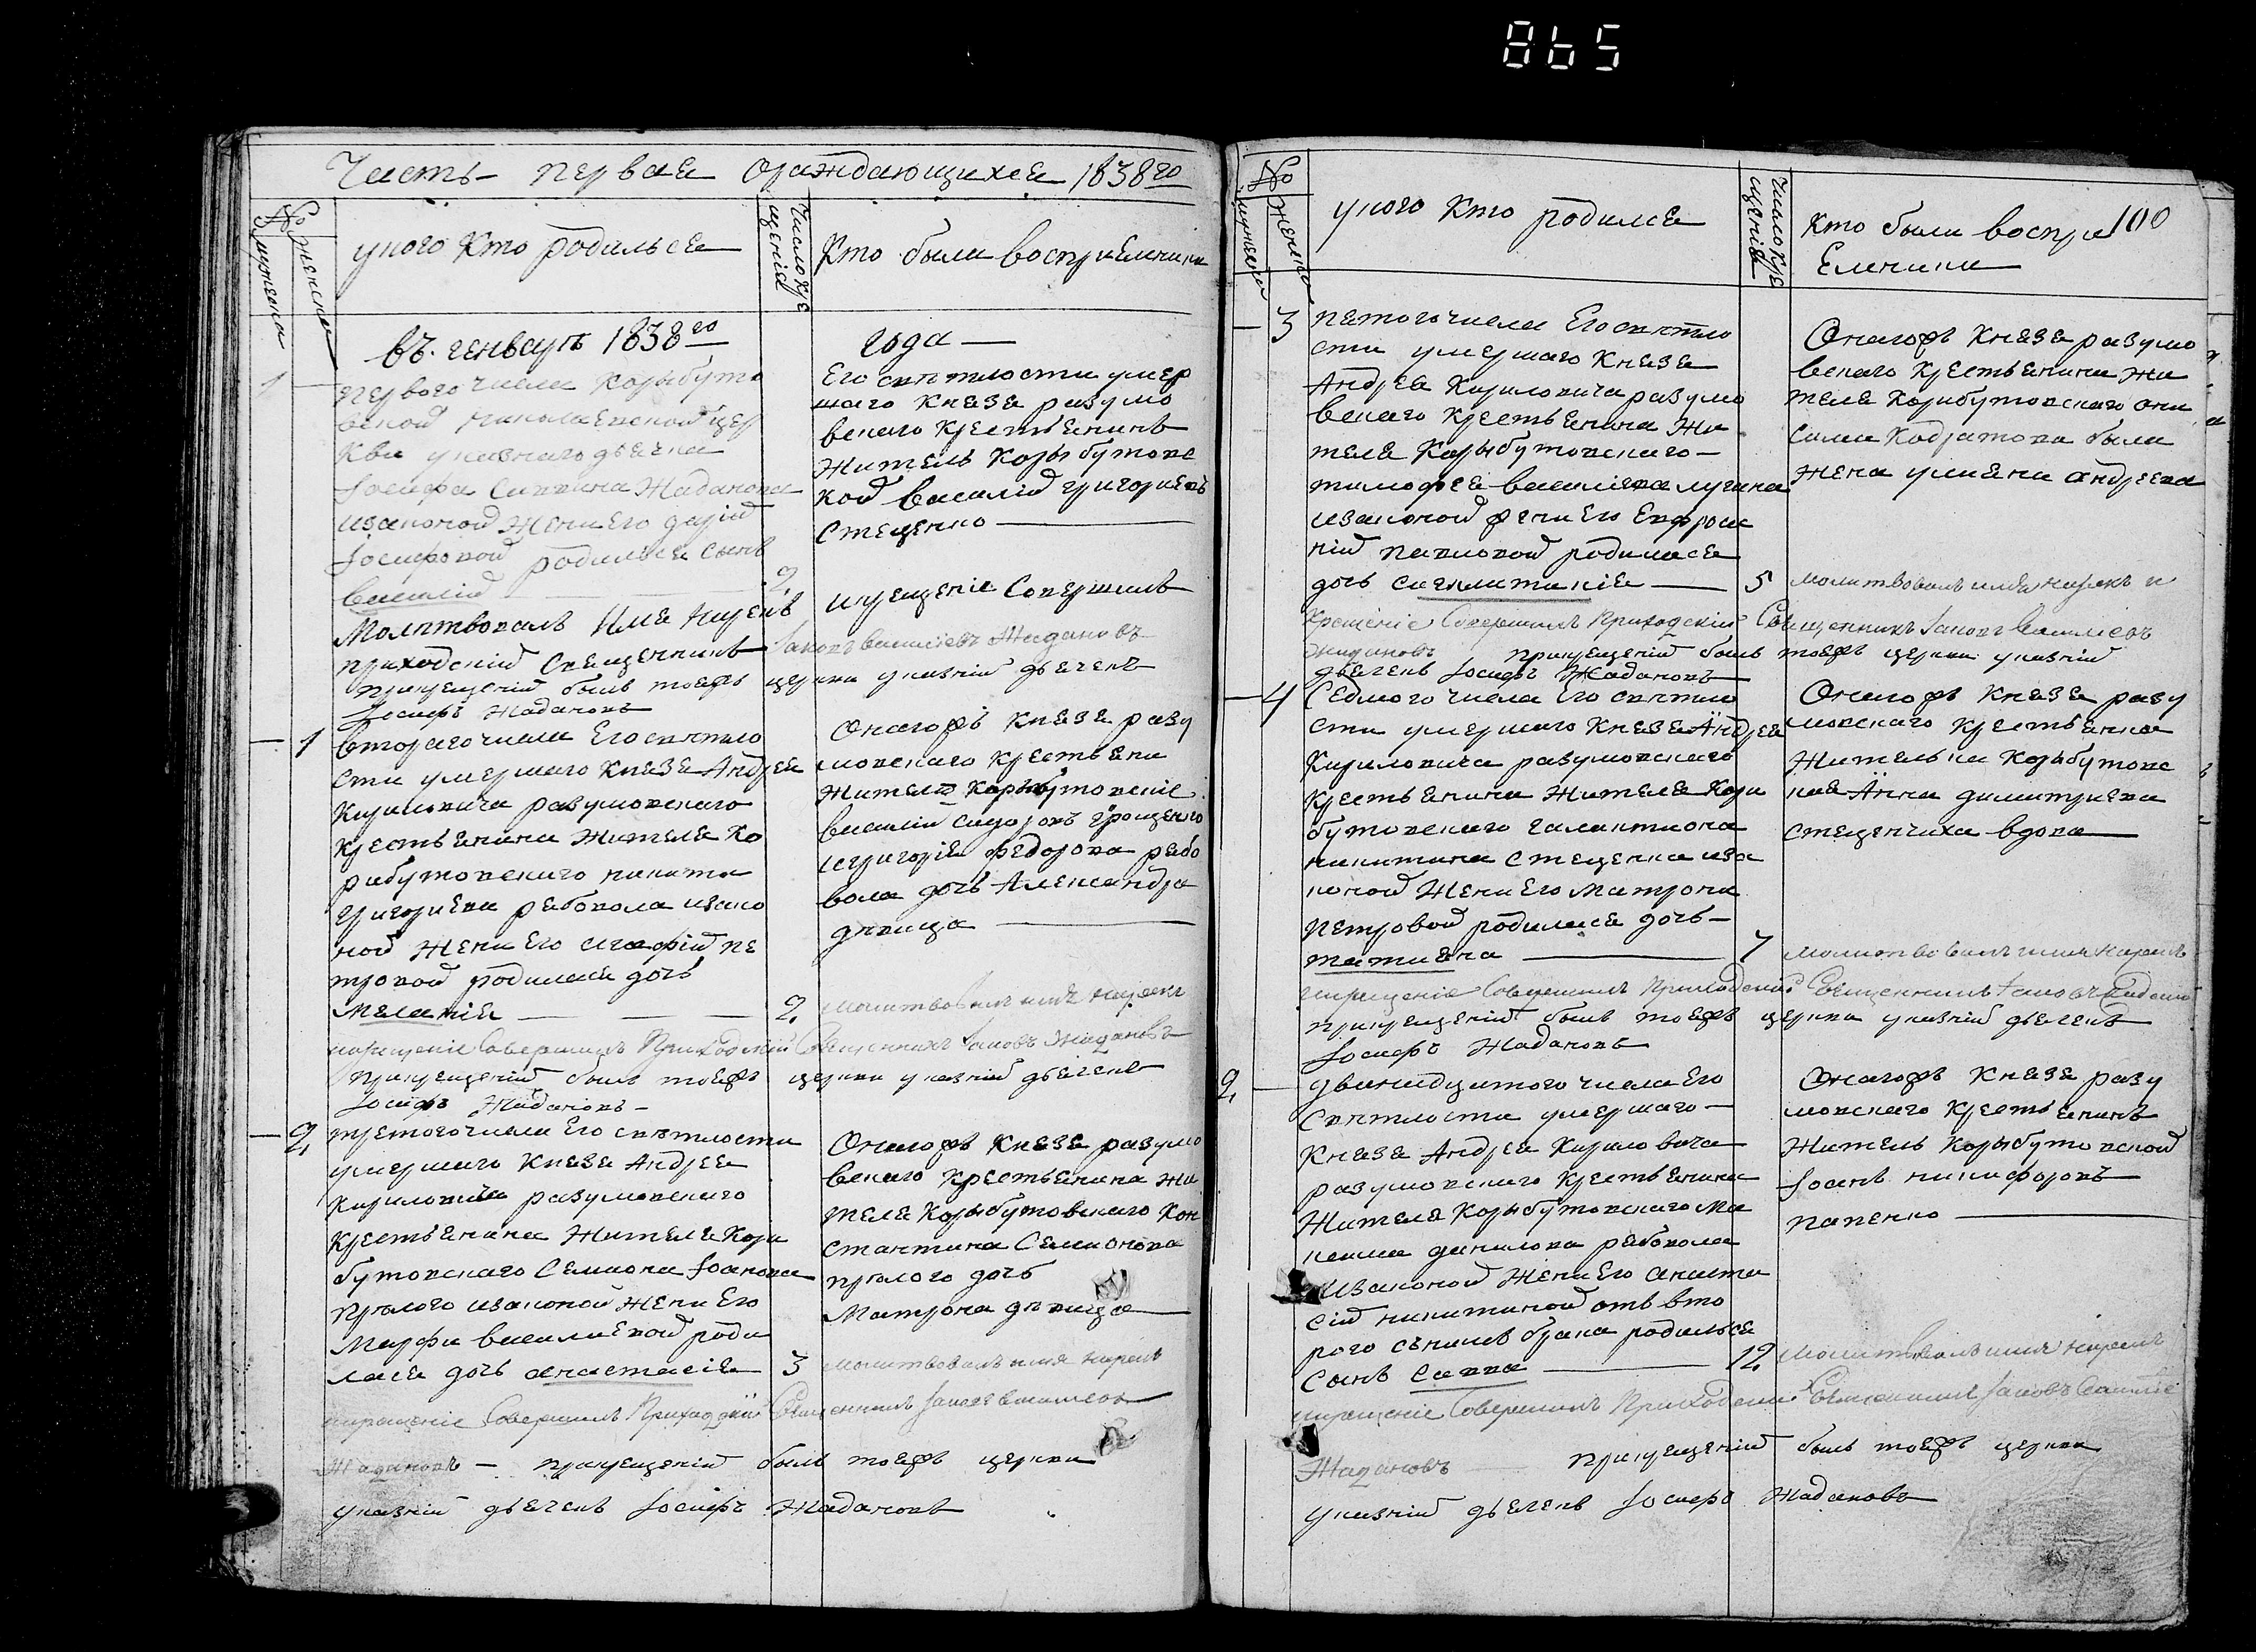 865
Часть первая ораждающихся 1838го
№
мужеска
женска
уного кто родилься
Число кре
щенія
Кто были восприемники
въ генваръ 1838го
года
1
первого числа Корыбуто
вской николаевской цер
кви указнаго дьячка
Іосифа Саввина Жаданова
изаконой жени его даріи
Іосифовой родилься сынъ
василій
2
Его свѣтлости умер
шаго князя разумо
вскаго крестьянинъ
житель Корыбутовс
кой василій григориевъ
Стеценко
Молитвовалъ имя нарекъ
икрещеніе Совершилъ
приходскій Священникъ Іаковъ василіевъ Жадановъ
прикрещеніи былъ тоеяжъ церкви указній дьячекъ
Іосифъ Жадановъ
1
втораго числа Его свѣтло
сти умершаго князя Андрея
Кириловича разумовскаго
крестьянина жителя Ко
рибутовскаго никити
григориева рябовола изако
ной жени его агафіи пе
тровой родилася дочь
меланія
2
Онагожъ князя разу
мовскаго крестьяни
жители Корибутовскіе
василій сидоровъ грощенко
игригорія федорова рябо
вола дочь Александра
дѣвица
молитвовалъ имя нарекъ
икрещеніе Совершилъ Приходскій Священникъ Іаковъ Жадановъ
прикрещеніи былъ тоеяжъ церкви указній дьячекъ
Іосифъ Жадановъ
2
третого числа Его свѣтлости
умершаго князя Андрея
Кириловича разумовскаго
крестьянина жителя Кори
бутовскаго Семиона Іоанова
прялого изаконой жени его
Марфи василиевой роди
лася дочь анастасія
3
Онагожъ князя разумо
вскаго крестьянина жи
теля Корыбутовскаго Кон
стантина Семионова
прялого дочь
Матрона дѣвица
молитвовалъ имя нарекъ
икрещеніе Совершилъ Приходскій Священникъ Іаковъ василіевъ
Жадановъ — прикрещеніи былъ тоеяжъ церкви
указній дьячекъ Іосифъ Жадановъ
№
мужеска
женска
уного кто родился
Число кре
щенія
кто были воспри
Емники
100
3
пятого числа Его свѣтло
сти умершаго князя
Андрея Кириловича разумо
вскаго крестьянина жи
теля Корыбутовскаго
тимофея василиева лугина
изаконой жени его Евфроси
ніи павловой родилася
дочь сагклитикія
5
Онагожъ князя разумо
вскаго крестьянина жи
теля Корибутовского они
сима Кодратова была
жена улияна андреева
молитвовалъ имя нарекъ и
крещеніе Совершилъ Приходскій Священникъ Іаковъ Василіевъ
Жадановъ прикрещеніи былъ тоеяжъ церкви указній
дьячекъ Іосифъ Жадановъ
4
Седмого числа Его свѣтло
сти умершаго князя Андрея
Кириловича разумовскаго
крестьянина жителя Кори
бутовскаго галактиона
никитина стеценка иза
коной жени его матрони
петровой родилася дочь
татияна
7
Онагожъ князя разу
мовскаго крестьянка
жителька Корыбутовс
кая Анна димитриева
стеценчиха вдова
молитвовалъ имя нарекъ
икрещеніе Совершилъ Приходскій Священникъ Іаковъ Жаданов
прикрещеніи былъ тоеяжъ церкви указній дьячекъ
Іосифъ Жадановъ
2
дванадцатого числа Его
Свѣтлости умершаго
князя Андрея Кириловича
разумовскаго крестьянина
жителя Корыбутовскаго ма
ксима данилова рябовола
изаконой жени его анаста
сіи никитиной отъ вто
рого съ нимъ брака родилься
сынъ Савва
12
Онагожъ князя разу
мовскаго крестьянинъ
житель Корыбутовской
Іоанъ никифоровъ
папенко
молитвовалъ имя нарекъ
икрещеніе Совершилъ Приходскій Священникъ Іаковъ Василіе
Жадановъ прикрещеніи былъ тоеяжъ церкви
указній дьячекъ Іосифъ Жадановъ